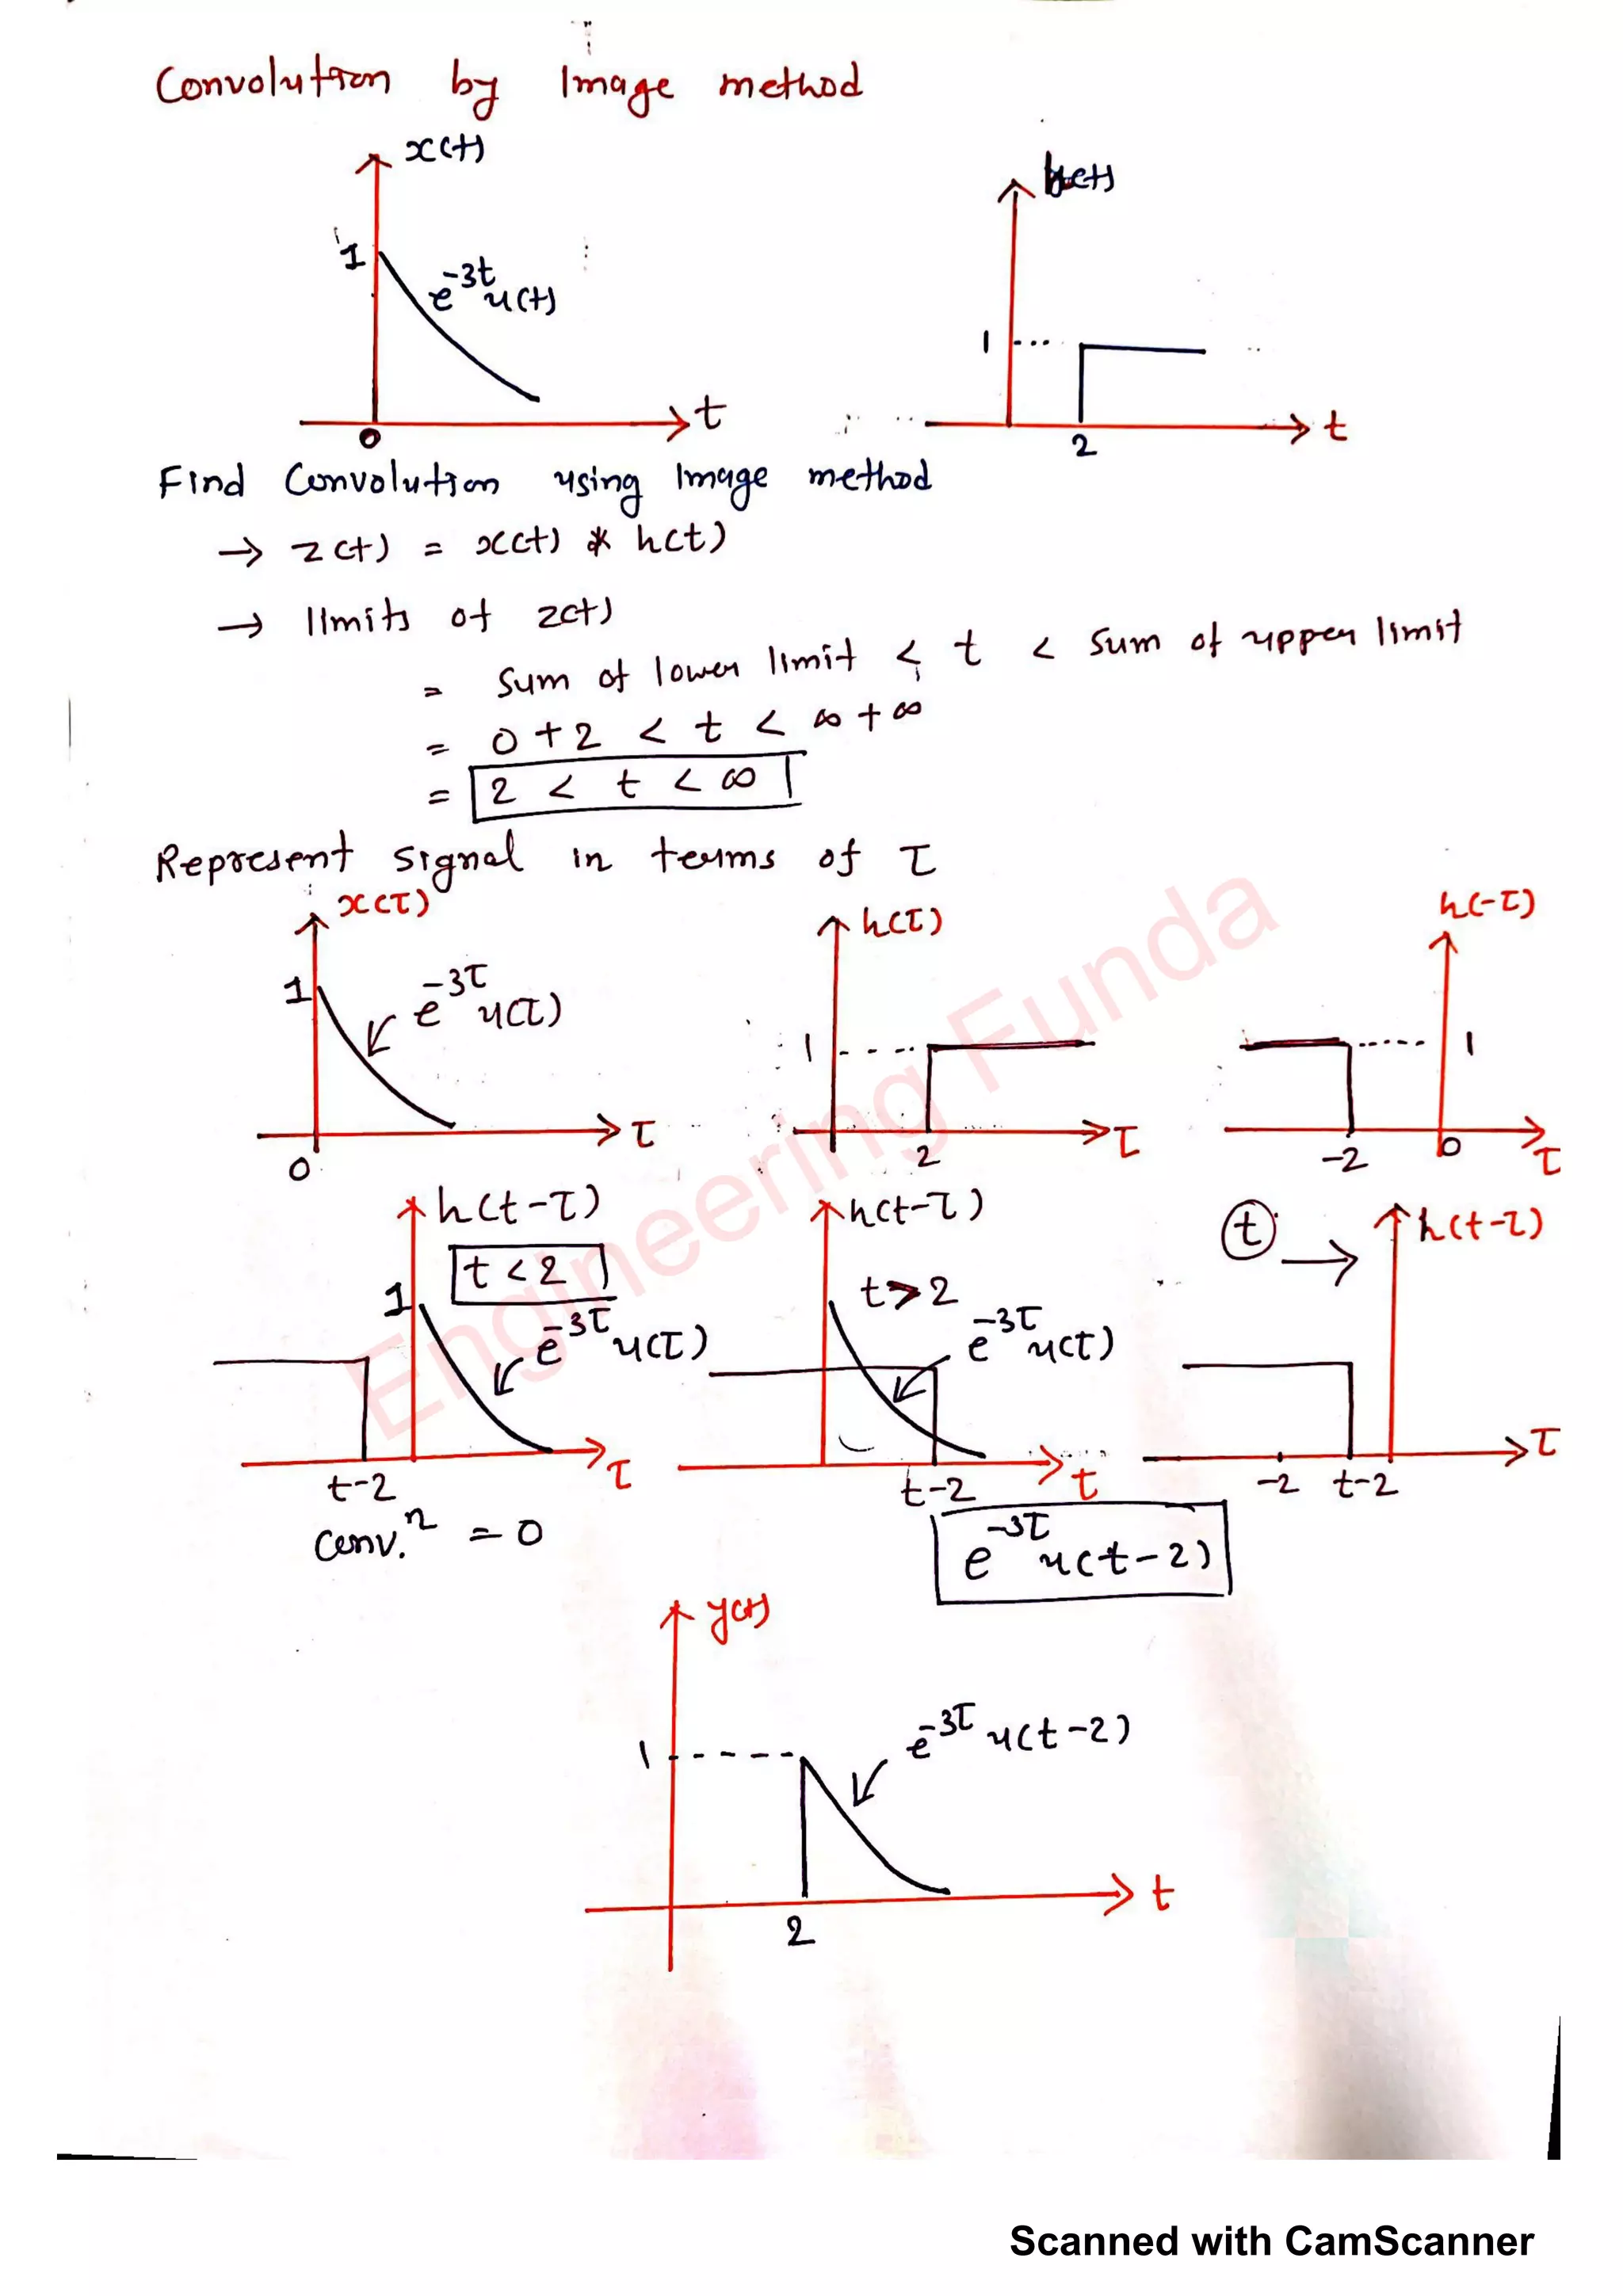 Convolution by Image method
x(t)
h(t)
1
e^-3t u(t)
1
0
t
2
t
Find Convolution using Image method
→ z(t) = x(t) * h(t)
→ limits of z(t)
= Sum of lower limit < t < Sum of upper limit
= 0 + 2 < t < ∞ + ∞
= 2 < t < ∞
Represent signal in terms of τ
x(τ)
h(τ)
h(-τ)
1
e^-3τ u(τ)
1
1
0
τ
2
τ
-2
0
τ
h(t-τ)
h(t-τ)
t
→
h(t-τ)
t < 2
t > 2
1
e^-3τ u(τ)
e^-3τ u(τ)
t-2
τ
t-2
t
-2
t-2
τ
Conv.n = 0
e^-3τ u(t-2)
y(t)
1
e^-3τ u(t-2)
2
t
Engineering Funda
Scanned with CamScanner